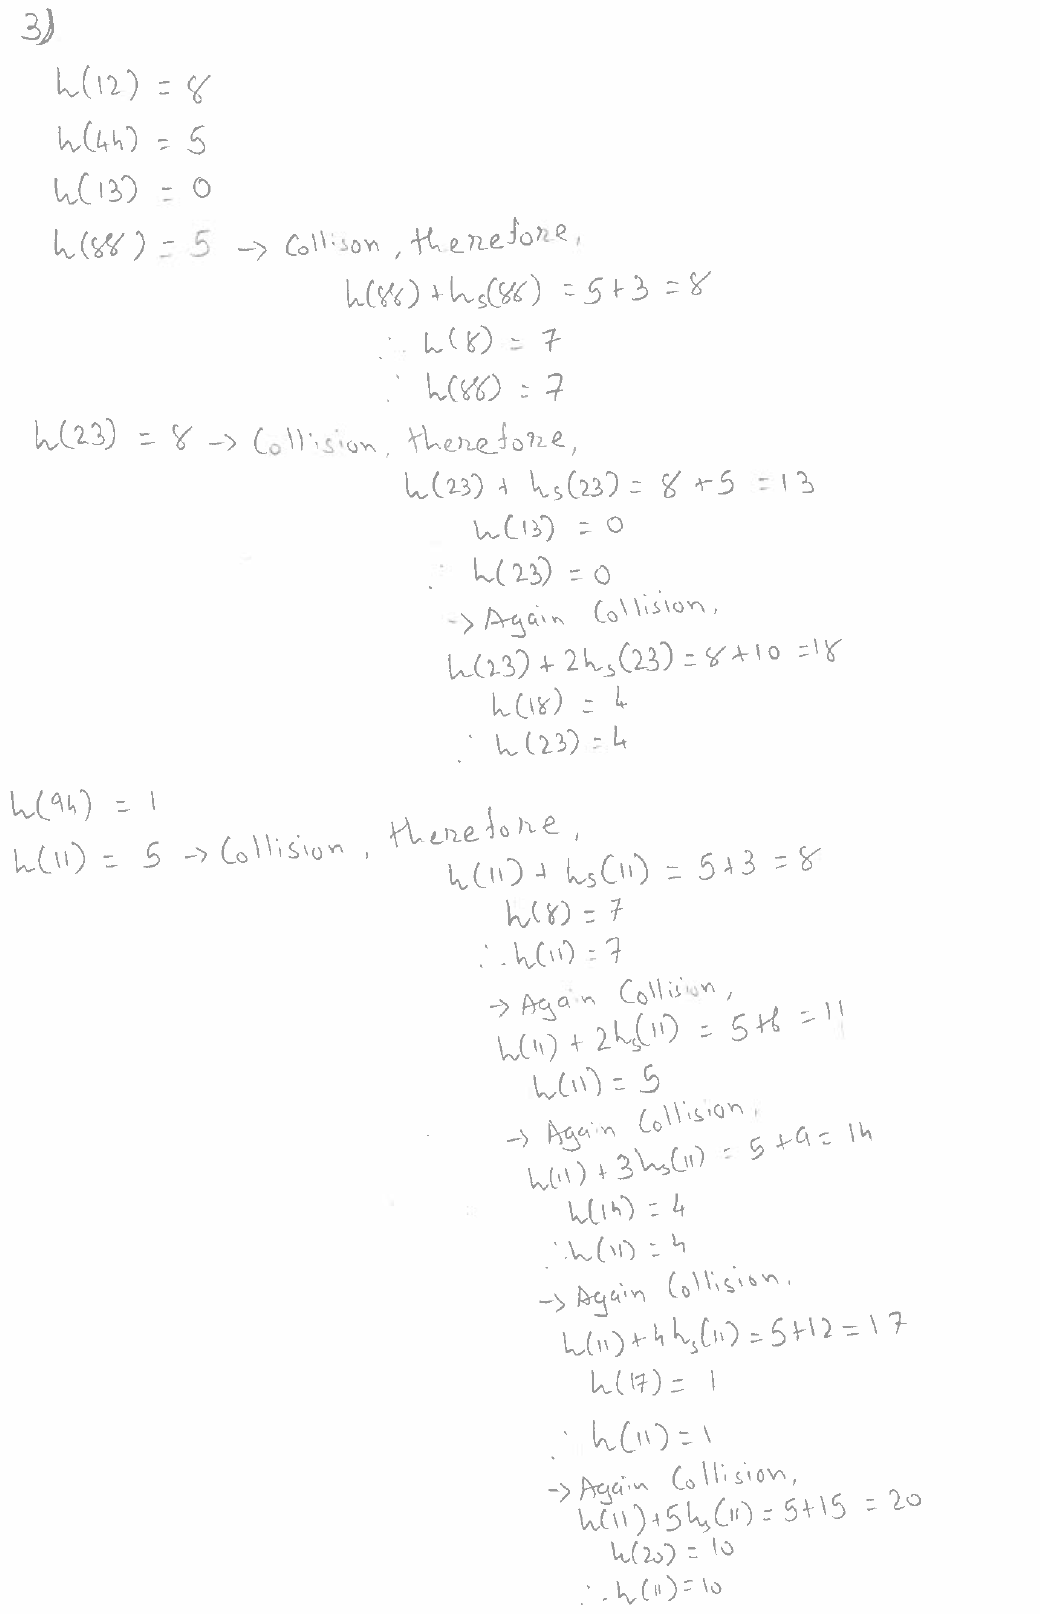 3)
h(12) = 8
h(44) = 5
h(13) = 0
h(88) = 5 → Collison, therefore,
h(88) + hs(88) = 5+3 = 8
∴ h(8) = 7
∴ h(88) = 7
h(23) = 8 → Collision, therefore,
h(23) + hs(23) = 8 + 5 = 13
h(13) = 0
∴ h(23) = 0
→ Again Collision,
h(23) + 2hs(23) = 8+10 = 18
h(18) = 4
∴ h(23) = 4
h(94) = 1
h(11) = 5 → Collision, therefore,
h(11) + hs(11) = 5+3 = 8
h(8) = 7
∴ h(11) = 7
→ Again Collision,
h(11) + 2hs(11) = 5+6 = 11
h(11) = 5
→ Again Collision,
h(11) + 3hs(11) = 5+9 = 14
h(14) = 4
∴ h(11) = 4
→ Again Collision,
h(11) + 4hs(11) = 5+12 = 17
h(17) = 1
∴ h(11) = 1
→ Again Collision,
h(11) + 5hs(11) = 5+15 = 20
h(20) = 10
∴ h(11) = 10